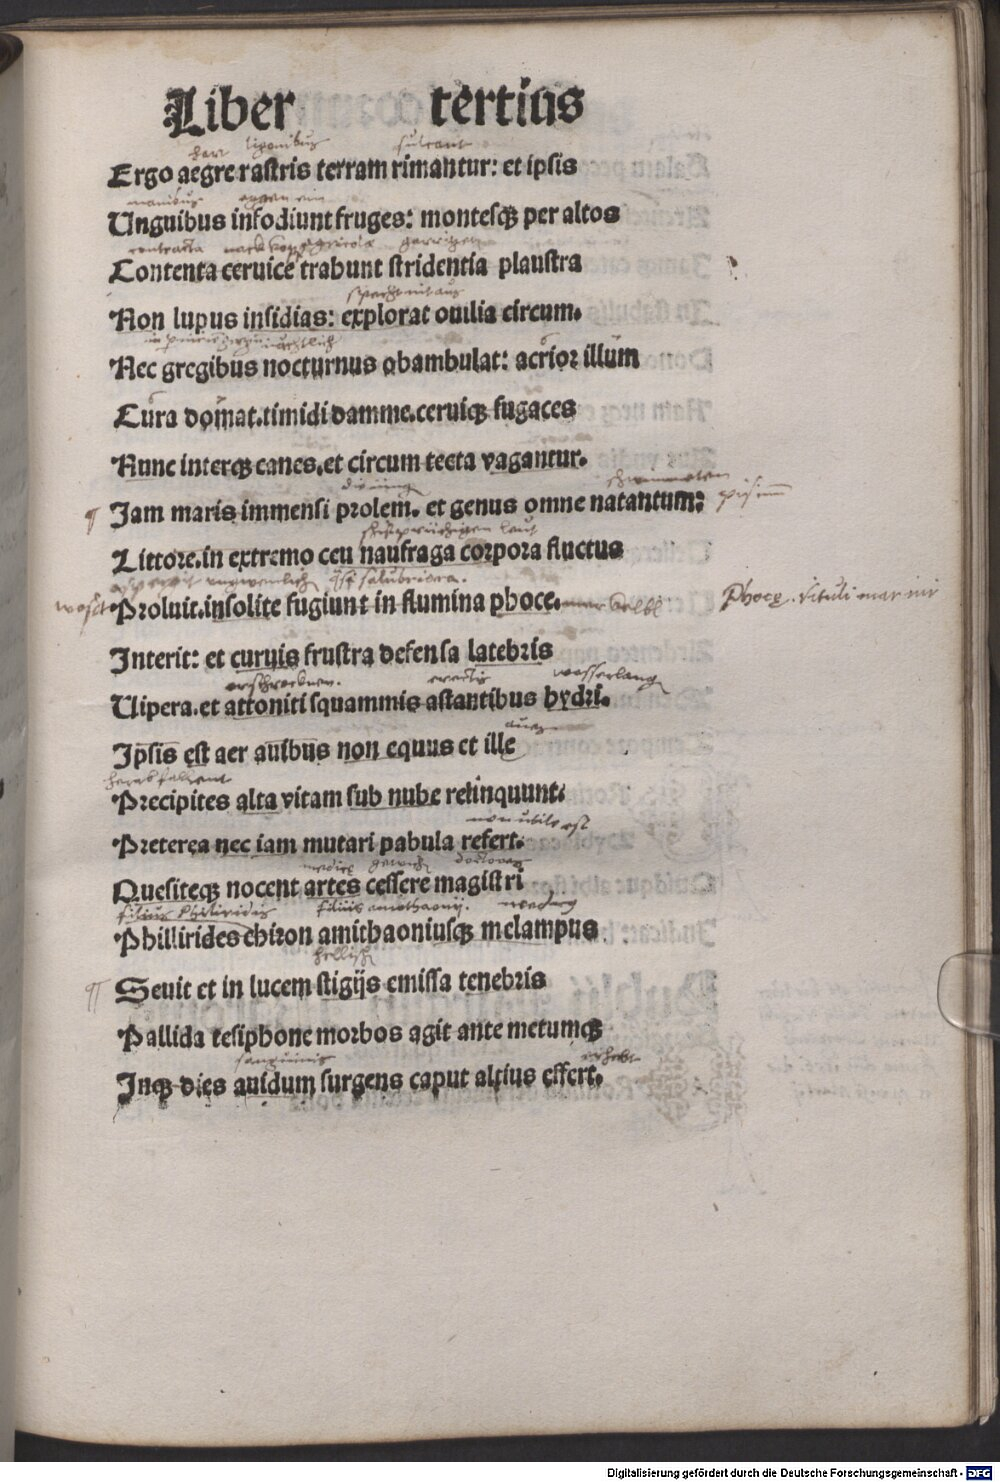 Liber tertius
ligonibus sulcant
Ergo aegre rastris terram rimantur: et ipsis
manibus
Unguibus infodiunt fruges: montesqꝫ per altos
contracta
Contenta ceruice trahunt stridentia plaustra
Non lupus insidias: explorat ouilia circum.
Nec gregibus nocturnus obambulat: acrior illum
Cura domat.timidi damme.ceruiqꝫ fugaces
Nunc interqꝫ canes.et circum tecta vagantur.
¶ Jam maris immensi prolem. et genus omne natantum:
Littore.in extremo ceu naufraga corpora fluctus
Proluit.insolite fugiunt in flumina phoce. mer kelbl Phocę. Vituli marini
Interit: et curuis frustra defensa latebris
erschrocknen. erectis wasserlang
Uipera.et attoniti squammis astantibus hydri.
Jpsis est aer auibus non equus et ille
Precipites alta vitam sub nube relinquunt.
non utile est
Preterea nec iam mutari pabula refert.
Quesiteqꝫ nocent artes cessere magistri
filius Philiridis filius amithaonij.
Phillirides chiron amithaoniusqꝫ melampus
hellisch
¶ Seuit et in lucem stigijs emissa tenebris
Pallida tesiphone morbos agit ante metumqꝫ
sanguinis erhebt
Jnqꝫ dies auidum surgens caput altius effert.
Digitalisierung gefördert durch die Deutsche Forschungsgemeinschaft - DFG